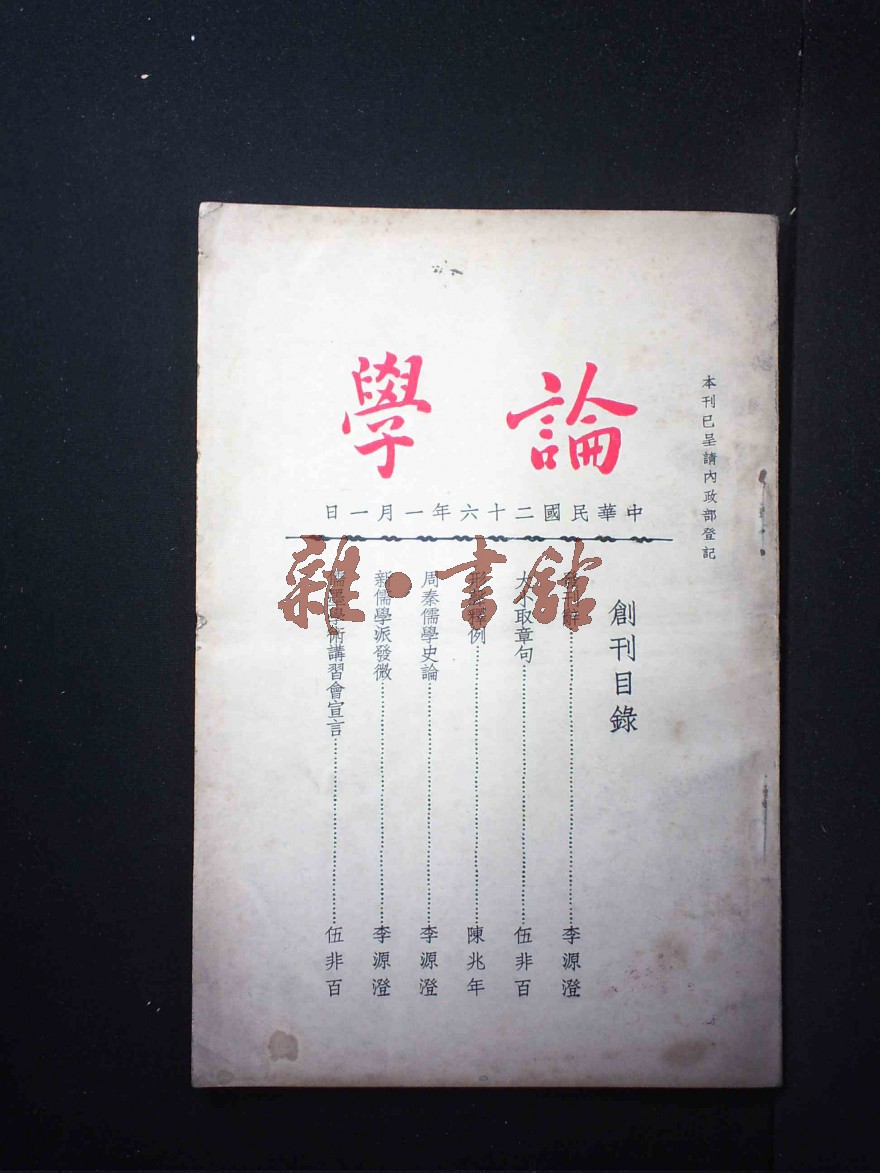 本刊已呈請內政部登記
論學
中華民國二十六年一月一日
創刊目錄
發刊辭⋯⋯李源澄
大小取章句⋯⋯伍非百
釋例⋯⋯陳兆年
周秦儒學史論⋯⋯李源澄
新儒學派發微⋯⋯李源澄
儒墨學術講習會宣言⋯⋯伍非百
雜·書館